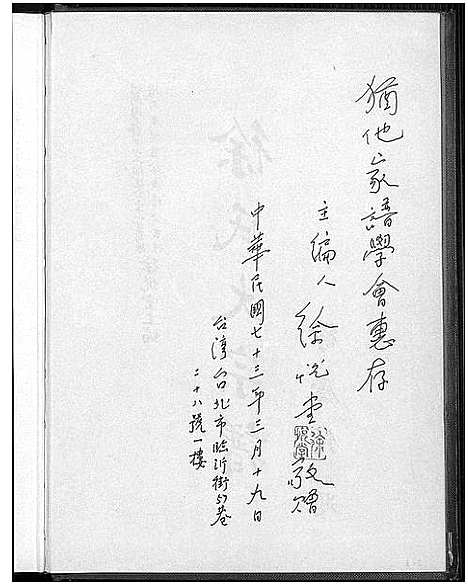 猶他家譜學會惠存
主編人徐悦堂敬贈
中華民國七十三年三月十九日
台湾台北市臨沂街57巷
二十八號一樓
徐氏